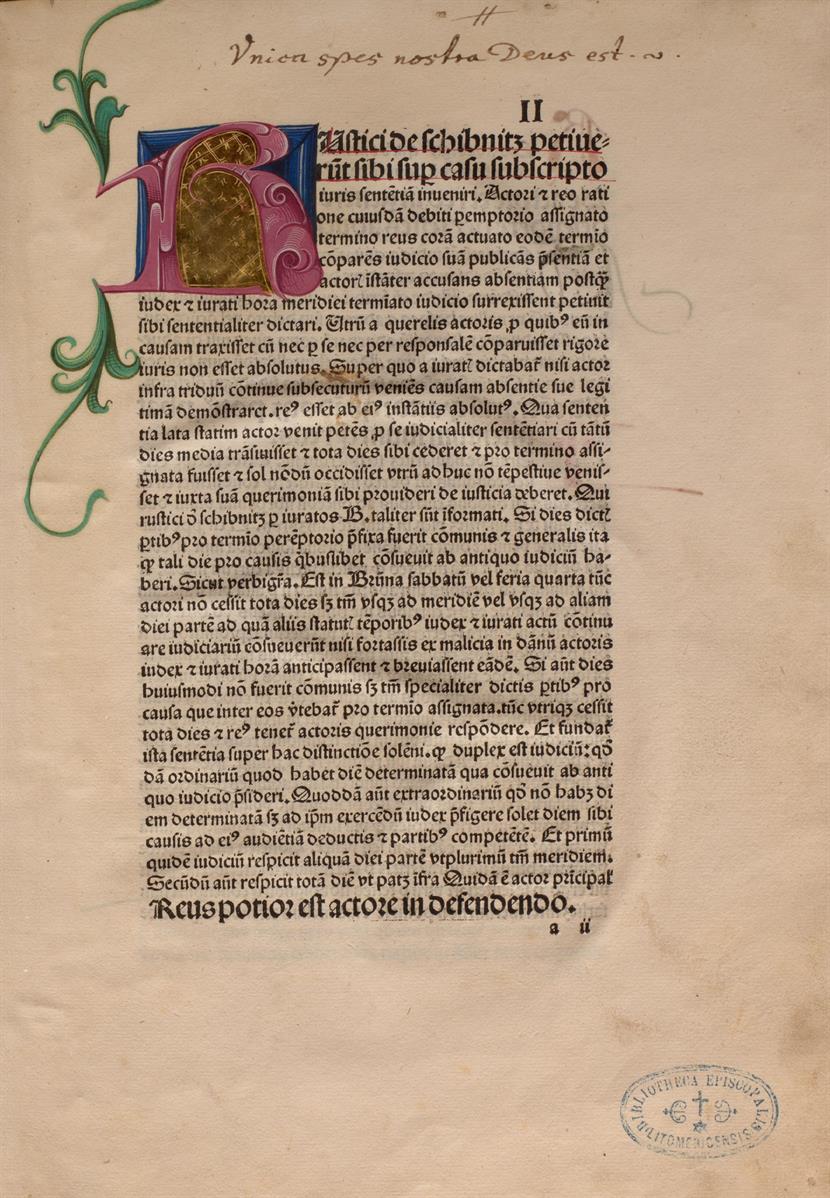 Vnica spes nostra Deus est.
II
RUstici de schibnitz petiue⸗
rūt sibi suꝑ casu subscripto
iuris sentētiā inueniri. Actori ⁊ reo rati
one cuiusdā debiti ꝑemptorio assignato
termino reus corā actuato eodē termīo
cōparēs iudicio suā publicās p̄sentiā et
actorꝭ īstāter accusans absentiam postqꝫ
iudex ⁊ iurati hora meridiei termīato iudicio surrexissent petiuit
sibi sententialiter dictari. Utrū a querelis actoris ꝓ quibꝰ eū in
causam traxisset cū nec ꝑ se nec per responsalē cōparuisset rigore
iuris non esset absolutus. Super quo a iuratꝭ dictabat᷑ nisi actor
infra triduū cōtinue subsecuturū veniēs causam absentie sue legi
timā demōstraret. reꝰ esset ab eiꝰ instātiis absolutꝰ. Qua senten
tia lata statim actor venit petēs ꝓ se iudicialiter sentētiari cū tātū
dies media trāsiuisset ⁊ tota dies sibi cederet ⁊ pro termino assi⸗
gnata fuisset ⁊ sol nōdū occidisset vtrū adhuc nō tēpestiue venis⸗
set ⁊ iuxta suā querimoniā sibi prouideri de iusticia deberet. Qui
rustici ō schibnitz ꝑ iuratos B. taliter sūt īformati. Si dies dictꝭ
ꝑtibꝰ pro termīo perēptorio p̄fixa fuerit cōmunis ⁊ generalis ita
qꝫ tali die pro causis qͥbuslibet cōsueuit ab antiquo iudiciū ha⸗
beri. Sicut verbigr̄a. Est in Brūna sabbatū vel feria quarta tūc
actori nō cessit tota dies sꝫ tm̄ vsqꝫ ad meridiē vel vsqꝫ ad aliam
diei partē ad quā aliis statutꝭ tēporibꝰ iudex ⁊ iurati actū cōtinu
are iudiciariū cōsueuerūt nisi fortassis ex malicia in dānū actoris
iudex ⁊ iurati horā anticipassent ⁊ breuiassent eādē. Si aūt dies
huiusmodi nō fuerit cōmunis sꝫ tm̄ specialiter dictis ꝑtibꝰ pro
causa que inter eos v̓tebat᷑ pro termīo assignata. tūc vtriqꝫ cessit
tota dies ⁊ reꝰ tenet᷑ actoris querimonie respōdere. Et fundat᷑
ista sentētia super hac distinctiōe solēni. qꝫ duplex est iudiciū: qō
dā ordinariū quod habet diē determinatā qua cōsueuit ab anti
quo iudicio p̄sideri. Quoddā aūt extraordinariū qō nō habꝫ di
em determinatā sꝫ ad ip̄m exercēdū iudex p̄figere solet diem sibi
causis ad eiꝰ audiētiā deductis ⁊ partibꝰ competētē. Et primū
quidē iudiciū respicit aliquā diei partē vtplurimū tm̄ meridiem.
Secūdū aūt respicit totā diē vt patꝫ īfra Quidā ē actor prīcipal᷑
Reus potior est actore in defendendo.
a ii
BIBLIOTHECA EPISCOPALIS
LITOMERICENSIS